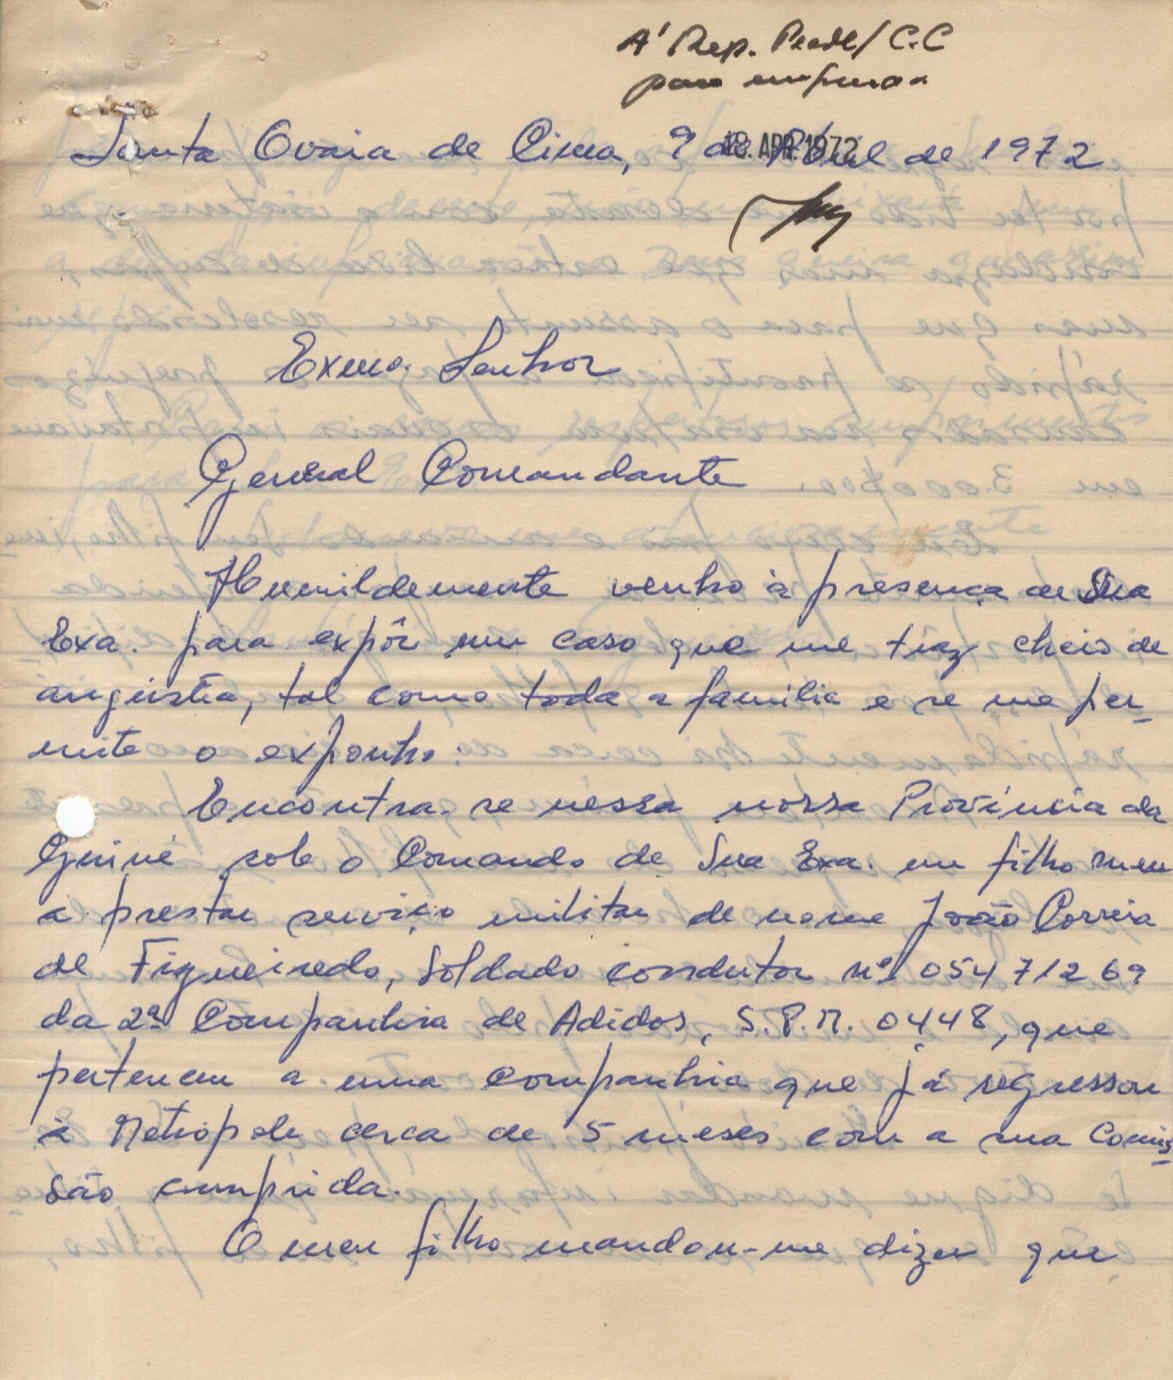 A' Rep. Pess/C.C
para
Santa Ovaia de Cima, 9 de Abril de 1972
18. APR. 1972
Exmo. Senhor
General Comandante
Humildemente venho à presença de Sua
Exa. para expôr um caso que me traz cheio de
angústia, tal como toda a familia e se me per-
mite o exponho.
Encontra-se nessa nossa Província da
Guiné sob o Comando de Sua Exa. um filho meu
a prestar serviço militar de nome João Correia
de Figueiredo, Soldado condutor nº 05471269
da 2ª Companhia de Adidos, S.P.M. 0448, que
pertenceu a uma Companhia que já regressou
à Metropole cerca de 5 meses com a sua Comis-
são cumprida.
O meu filho mandou-me dizer que